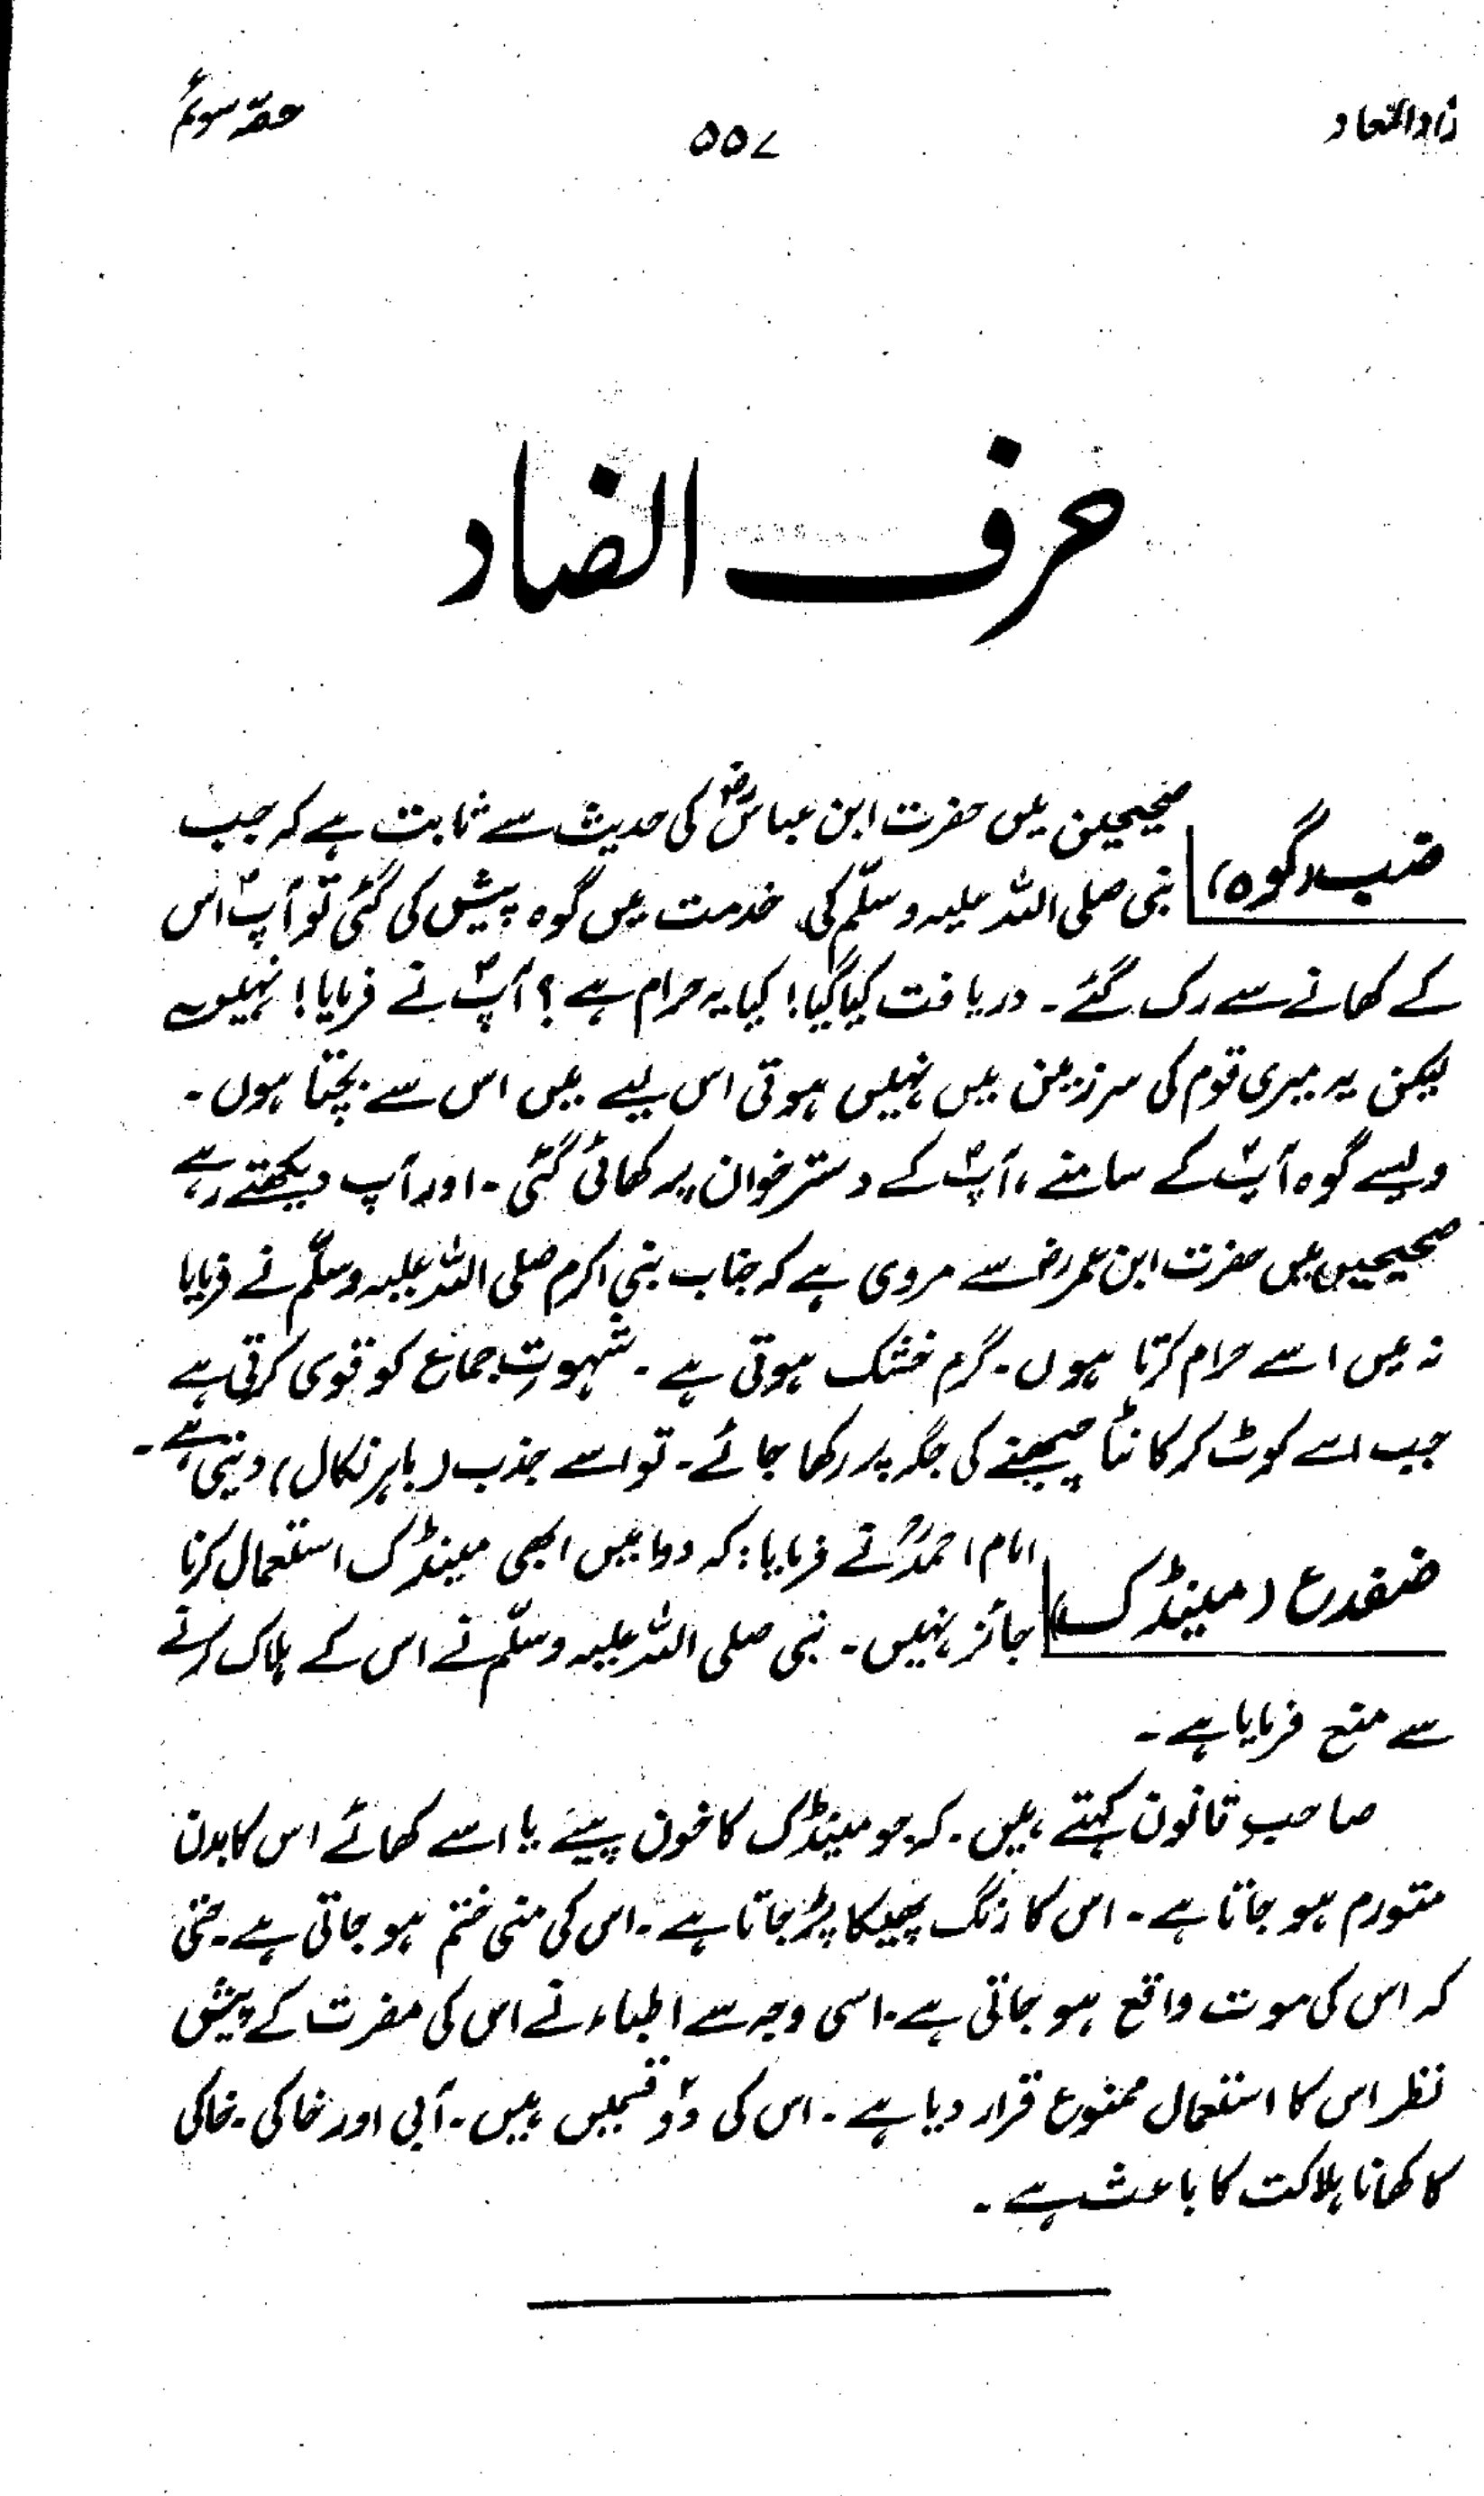 زاد المعاد ۵۵۷ حصہ سوئم
حرف الضاد
ضب (گوہ)
صحیحین میں حضرت ابن عباسؓ کی حدیث سے ثابت ہے کہ جب
نبی صلی اللہ علیہ وسلم کی خدمت میں گوہ پیش کی گئی تو آپؐ اس
کے کھانے سے رک گئے۔ دریافت کیا گیا! کیا یہ حرام ہے؟ آپؐ نے فرمایا! نہیں
لیکن یہ میری قوم کی سرزمین میں نہیں ہوتی اس لیے میں اس سے بچتا ہوں۔
ویسے گوہ آپؐ کے سامنے، آپؐ کے دسترخوان پر کھائی گئی۔ اور آپ دیکھتے رہے
صحیحین میں حضرت ابن عمر رض سے مروی ہے کہ جناب نبی اکرم صلی اللہ علیہ وسلم نے فرمایا
نہ میں اسے حرام کرتا ہوں۔ گرم خشک ہوتی ہے۔ شہوتِ جماع کو قوی کرتی ہے
جب اسے کوٹ کر کانٹا چبھنے کی جگہ پر رکھا جائے۔ تو اسے جذب (باہر نکال) دیتی ہے۔
ضفدع (مینڈک)
امام احمدؒ نے فرمایا: کہ دوا میں ابھی مینڈک استعمال کرنا
جائز نہیں۔ نبی صلی اللہ علیہ وسلم نے اس کے ہلاک کرنے
سے منع فرمایا ہے۔
صاحب قانون کہتے ہیں۔ کہ جو مینڈک کا خون پیئے یا اسے کھائے اس کا بدن
متورم ہو جاتا ہے۔ اس کا رنگ پھیکا پڑ جاتا ہے۔ اس کی منی ختم ہو جاتی ہے۔ حتیٰ
کہ اس کی موت واقع ہو جاتی ہے۔ اسی وجہ سے اطباء نے اس کی مضرت کے پیش
نظر اس کا استعمال ممنوع قرار دیا ہے۔ اس کی دو قسمیں ہیں۔ آبی اور خاکی۔ خاکی
کا کھانا ہلاکت کا باعث ہے۔